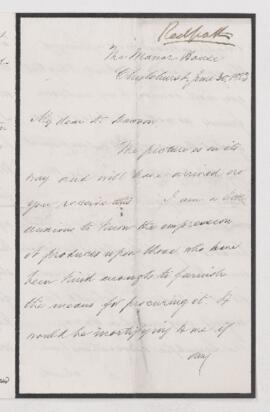 Redpath
The Manor House
Chislehurst, June 30, 1883
My dear Dr Dawson
The picture is on its
way and will have arrived as
you receive this. I am a little
anxious to know the impression
it produces upon those who have
been kind enough to furnish
the means for procuring it. It
would be mortifying to me if
any